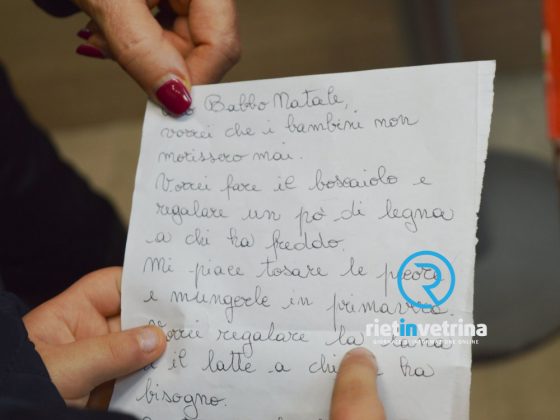 Babbo Natale,
vorrei che i bambini non
morissero mai.
Vorrei fare il boscaiolo e
regalare un pò di legna
a chi ha freddo.
Mi piace tosare le pecore
e mungerle in primavera
Vorrei regalare la lana
e il latte a chi ne ha
bisogno.
rietinvetrina
GIORNALE D'INFORMAZIONE ONLINE